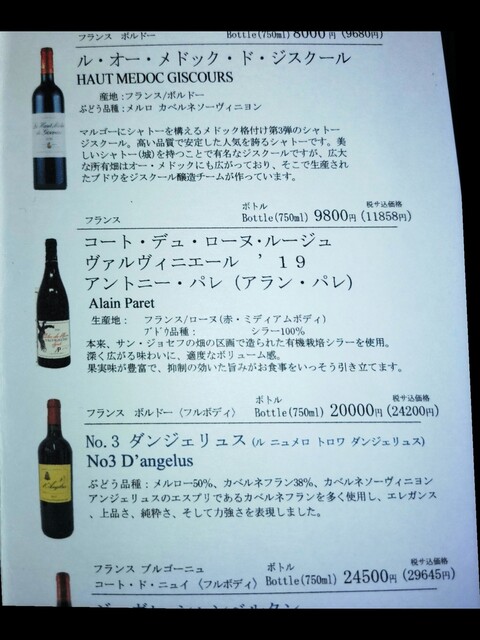 フランス ボルドー Bottle(750ml) 8000円 (9680円)
ル・オー・メドック・ド・ジスクール
HAUT MEDOC GISCOURS
産地:フランス/ボルドー
ぶどう品種:メルロ カベルネソーヴィニヨン
マルゴーにシャトーを構えるメドック格付け第3弾のシャトー
ジスクール。高い品質で安定した人気を誇るシャトーです。美
しいシャトー(城)を持つことで有名なジスクールですが、広大
な所有畑はオー・メドックにも広がっており、そこで生産され
たブドウをジスクール醸造チームが作っています。
ボトル 税サ込価格
フランス Bottle(750ml) 9800円 (11858円)
コート・デュ・ローヌ・ルージュ
ヴァルヴィニエール ’19
アントニー・パレ(アラン・パレ)
Alain Paret
生産地: フランス/ローヌ(赤・ミディアムボディ)
ブドウ品種: シラー100%
本来、サン・ジョセフの畑の区画で造られた有機栽培シラーを使用。
深く広がる味わいに、適度なボリューム感。
果実味が豊富で、抑制の効いた旨みがお食事をいっそう引き立てます。
ボトル 税サ込価格
フランス ボルドー〈フルボディ〉 Bottle(750ml) 20000円 (24200円)
No.3 ダンジェリュス (ル ニュメロ トロワ ダンジェリュス)
No3 D’angelus
ぶどう品種:メルロー50%、カベルネフラン38%、カベルネソーヴィニヨン
アンジェリュスのエスプリであるカベルネフランを多く使用し、エレガンス
、上品さ、純粋さ、そして力強さを表現しました。
フランス ブルゴーニュ ボトル 税サ込価格
コート・ド・ニュイ 〈フルボディ〉 Bottle(750ml) 24500円 (29645円)